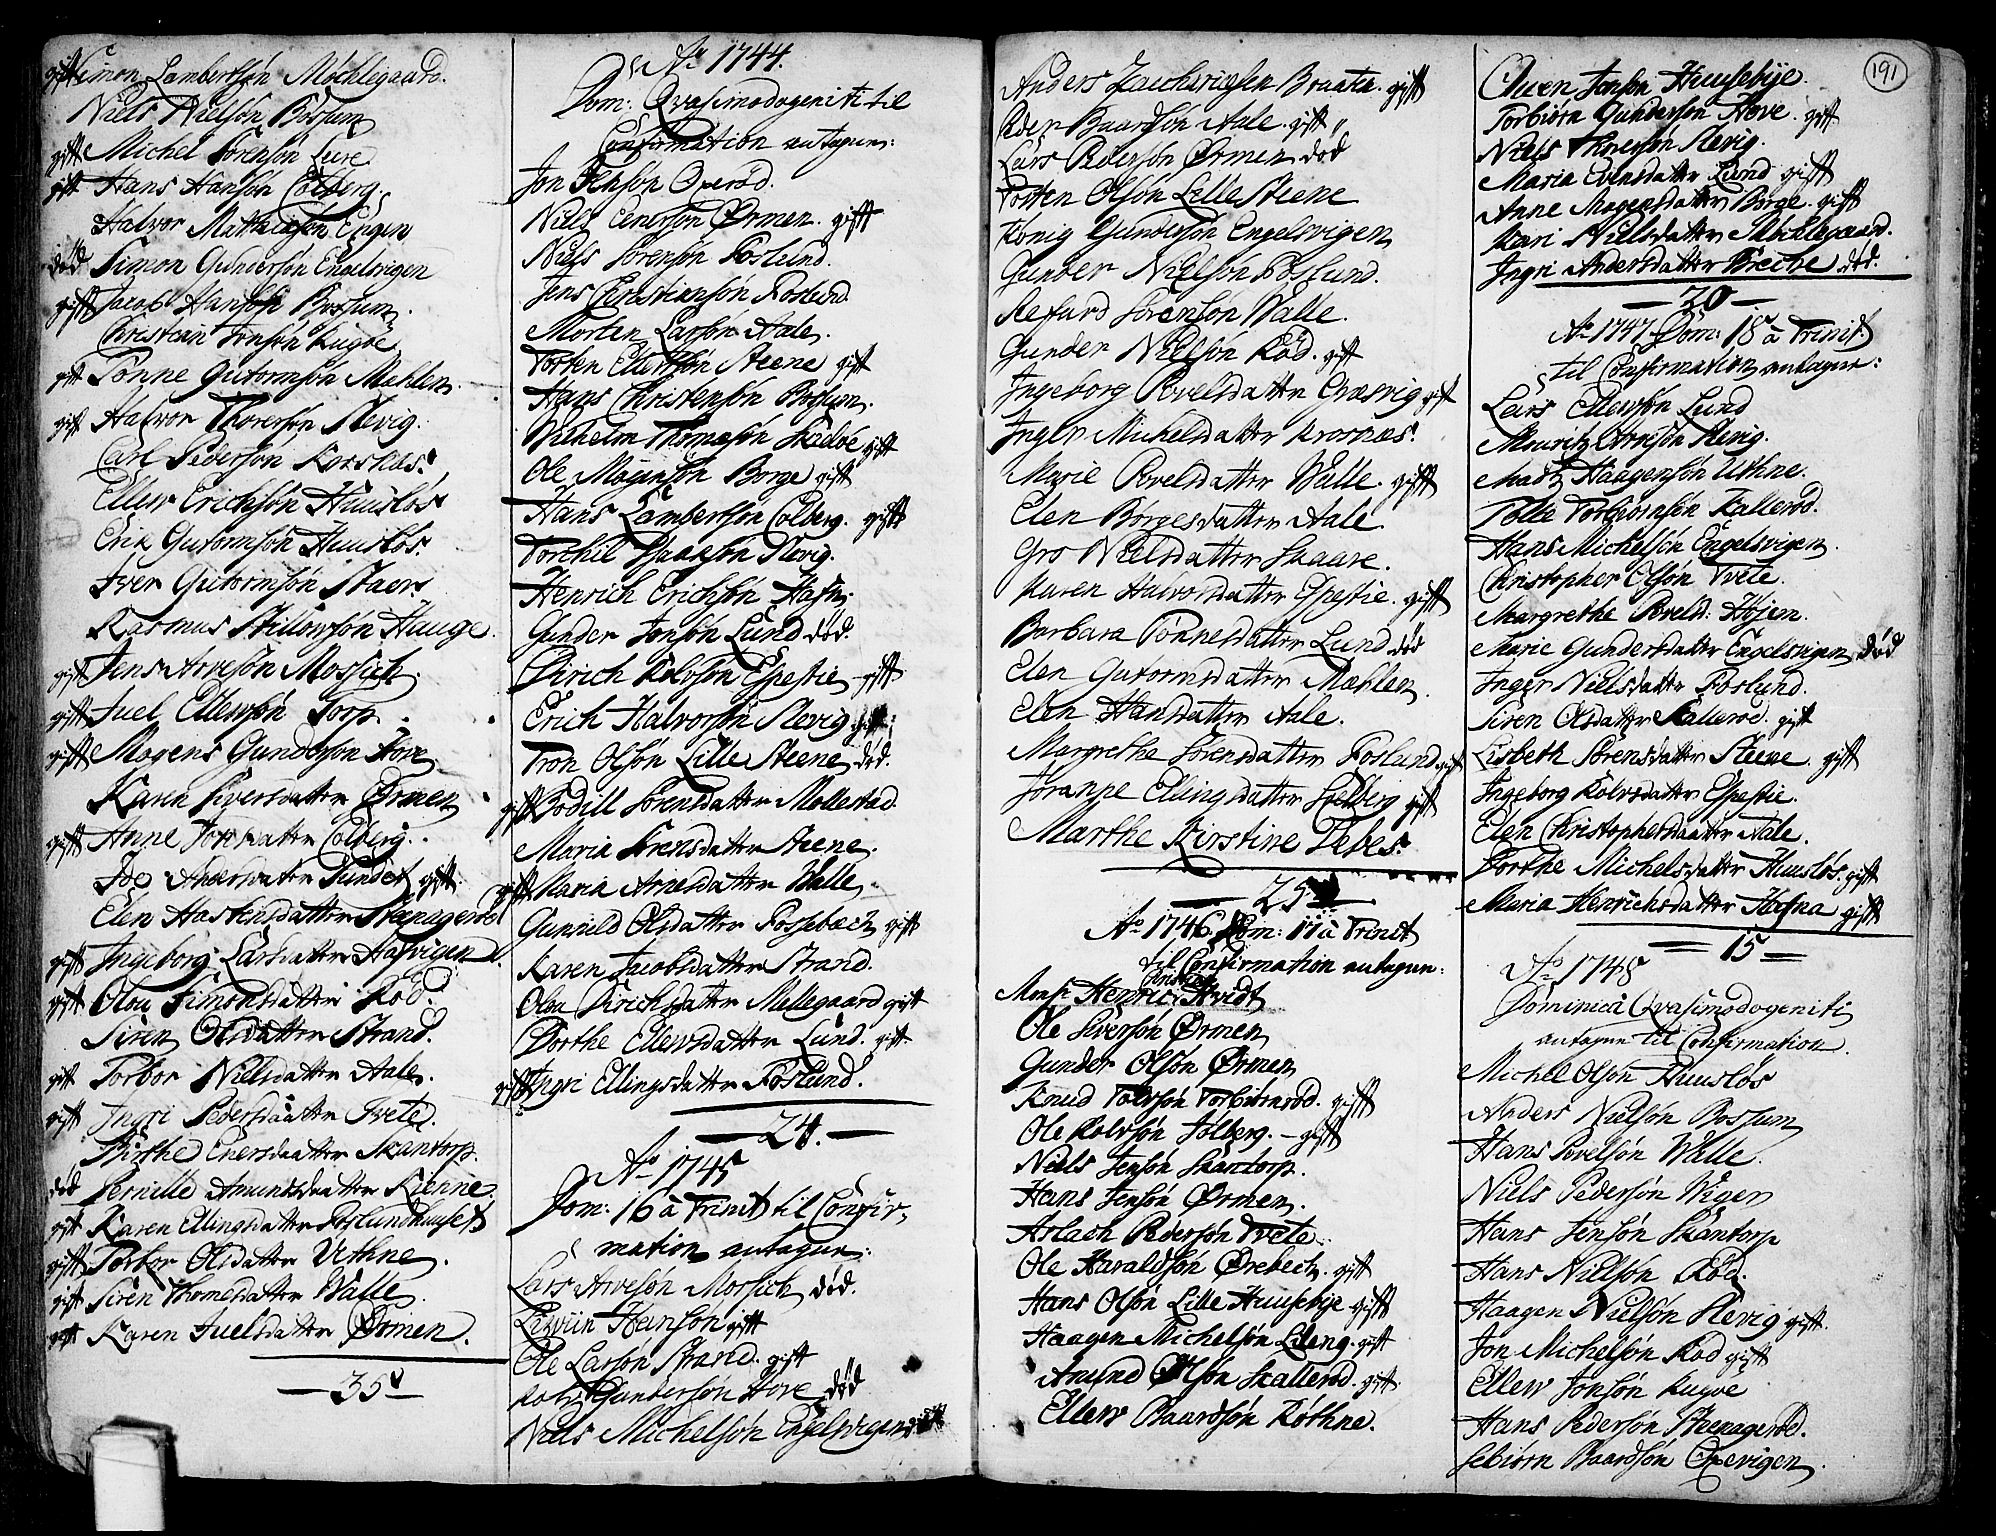 gift Simon Lambertsøn Møcklegaard.
Niels Nielsøn Bossum
gift Michel Sørensøn Lere
gift Hans Hansøn Colberg.
Halvor Mathiasøn Engen
død Simon Gundersøn Engelsvigen
gift Jacob Hansøn Bossum.
Christian Jonsøn Kugøe.
gift Tønne Gutormsøn Mæhlen.
gift Halvor Thoresøn Slevig.
Carl Pedersøn Korsnæs.
Ellew Erichsøn Huusløs
Erik Gutormsøn Huusløs.
Iver Gutormsøn
Rasmus Hauge.
gift Jens Arvesøn Mossich.
gift Juel Ellewsøn Torp.
gift Mogens Gundersøn Hove
Karen Siversdatter Ørmen
gift Anne datter Colberg.
Andersdatter gift.
Elen datter Steenagerød
gift Ingeborg Larsdatter Hafvigen.
gift Olou Simonsdatter Rød.
Siren Olsdatter Strand.
gift Torbor Nielsdatter Aale.
gift Ingri Pedersdaatter Tvete.
Birthe Enersdaatter Skantorp.
død Pernille Amundsdaatter Kienne.
gift Karen Ellingsdatter Foslundhuuset
gift Torbor Olsdatter Uthne.
gift Siren Thomesdatter Walle.
gift Karen Juelsdatter Ørmen.
— 35 —
Ao 1744.
Dom: Qvasimodogeniti til
Confirmation antagen:
Jon Jensøn Ørerød.
Niels Enersøn Ørmen. gift
Niels Sørensøn Foslund.
Jens Christiansøn Foslund
Morten Larsøn Aale.
Torsten Ellefsøn Steene gift
Hans Christensøn Bossum.
Wilhelm Thomesøn Kadøe gift
Ole Mogensøn Borge gift
Hans Lambertsøn Colberg. gift
Torchil Slevig.
Henrich Erichsøn Hafn.
Gunder Jonsøn Lund død.
Dirich Rolvsøn Espetie gift
Erich Halvorsøn Slevig gift
Tron Olsøn Lille Steene død.
gift Bodill Sørensdatter Møllestad.
Maria Sørensdatter Steene.
gift Maria Arnesdatter Walle.
Gunnild Olsdatter Fossebech gift
Karen Jacobsdatter Strand.
Olou Dirichsdatter Mellegaard gift
Dorthe Ellewsdatter Lund. gift
gift Ingri Ellingsdatter Foslund.
— 24. —
Ao 1745
Dom: 16 à Trinit til Confir-
mation antagen:
Lars Arvesøn Mossich død.
Hansøn gift
Ole Larsøn Strand. gift
Rolv Gundersøn Hove død
Niels Michelsøn Engelsvigen
Anders Zachariæsen Braata. gift
Peder Baardsøn Aale. gift
Lars Pedersøn Ørmen død
Torsten Olsøn Lille Steene
König Gundersøn Engelsvigen
Gunder Nielsøn Foslund.
Sørensøn Walle.
Gunder Nielsøn Rød. gift
Ingeborg Povelsdatter Græsvig gift
Inger Michelsdatter Krosnæs.
Marie Povelsdatter Walle. gift
Elen Børgesdatter Aale.
Gro Nielsdatter Skaare.
Karen Halvorsdatter Espetie. gift
Barbara Tønnesdatter Lund død
Elen Gutormsdatter Mæhlen.
Elen Hansdatter Aale.
Margrethe Sørensdatter Foslund gift
Joranne Ellingsdatter Solberg gift
Marthe Kirstine Febes.
— 25 —
Ao 1746. Dom: 11 à Trinit
til Confirmation antagen:
Christian
Monsr Henric Hvidt
Ole Siversøn Ørmen
Gunder Olsøn Ørmen
Knud Tolvsøn Torbiørnsrød. gift
Ole Rolvsøn Solberg. gift
Niels Jensøn Skantorp.
Hans Jensøn Ørmen.
Aslach Pedersøn Tvete.
Ole Haraldsøn Ørebech. gift
Hans Olsøn Lille Huusebye gift
Haagen Michelsøn Lileng. gift
Amund Olsøn Skallerød. gift
Ellew Baardsøn Røthne.
191
Owen Jonsøn Huusebye.
Torbiørn Gundersøn Hove. gift
Niels Thoresøn Slevig.
Maria Evensdatter Lund gift
Anne Mogensdatter Borge. gift
Kari Nielsdatter Møcklegaard.
Ingri Andersdatter Breche død.
— 20 —
Ao 1747 Dom: 18 à Trinit.
til Confirmation antagen:
Lars Ellewsøn Lund
Mouritz Arnesøn Slevig.
Madz Haagensøn Uthne.
Tolle Torbiørnsøn Kallerød.
Hans Michelsøn Engelsvigen.
Christopher Olsøn Tvete.
Margrethe Poveld: Høyen.
Marie Gundersdatter Engelsvigen død
Inger Nielsdatter Foslund.
Siren Olsdatter Skallerød. gift
Lisbeth Sørensdatter Steene. gift
Ingeborg Rolvsdatter Espetie.
Elen Christophersdaatter Aale.
Dorthe Michelsdatter Huusløs. gift
Maria Henrichsdatter Hafna gift
— 15 —
Ao 1748
Dominica Qvasimodogeniti
antagen til Confirmation.
Michel Olsøn Huusløs
Anders Nielsøn Bossum
Hans Povelsøn Walle.
Niels Pedersøn Wigen
Hans Jensøn Skantorp
Hans Nielsøn Rød.
Haagen Nielsøn Slevig gift.
Jon Michelsøn Rød gift
Ellew Jonsøn Kugøe
Hans Pedersøn Steenagerød.
Sebiørn Baardsøn Ørevigen.